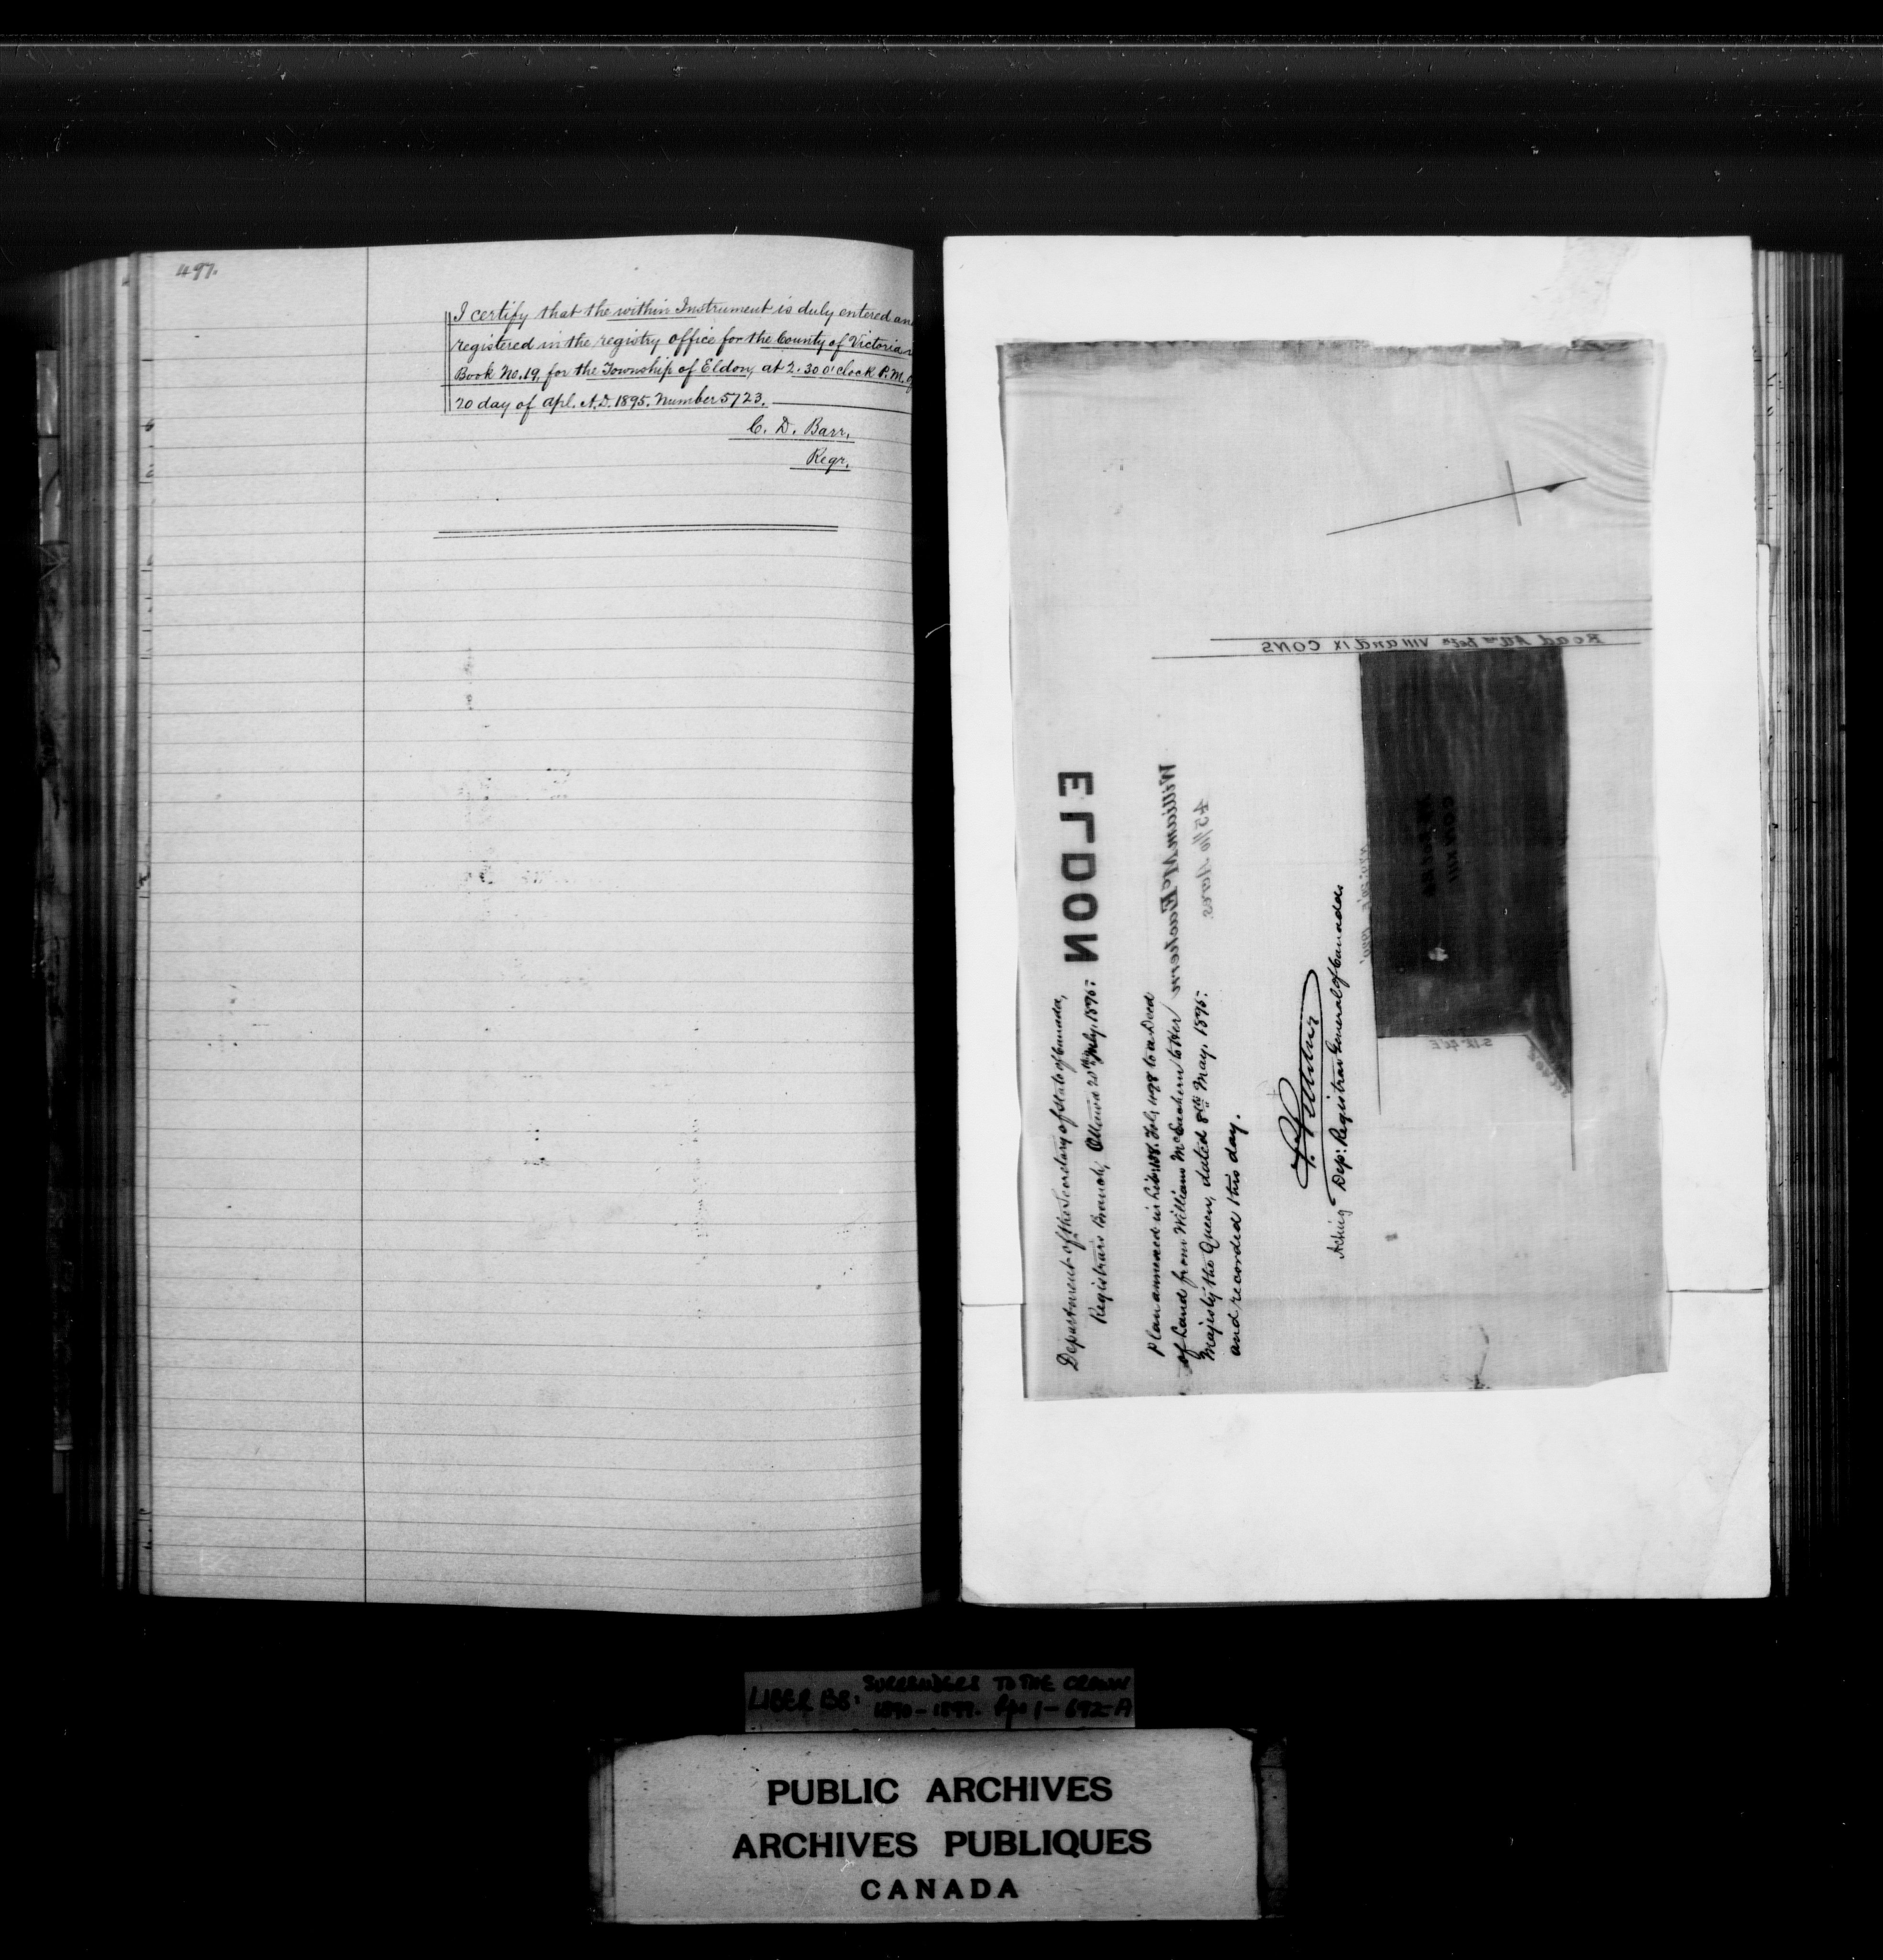 497.
I certify that the within Instrument is duly entered an
registered in the registry office for the County of Victoria
Book No. 19, for the Township of Eldon, at 2.30 o'clock P.M.
20 day of Apl. A.D. 1895. Number 5723.
C. D. Barr,
Regr.
ELDON
Department of the Secretary of State of Canada,
Registrar's Branch, Ottawa 20th July, 1895:
William McEachern
45/10 Acres
Plan annexed in Lib: 108. Fol: 498 to a Deed
of Land from William McEachern to Her
Majesty the Queen, dated 8th May, 1895:
and recorded this day.
Acting Dep: Registrar General of Canada
Road All'ce betn VIII and IX CONS
S 12° 40' E
LIBER B8: SURRENDERS TO THE CROWN
1890-1899. Pps 1-692-A
PUBLIC ARCHIVES
ARCHIVES PUBLIQUES
CANADA